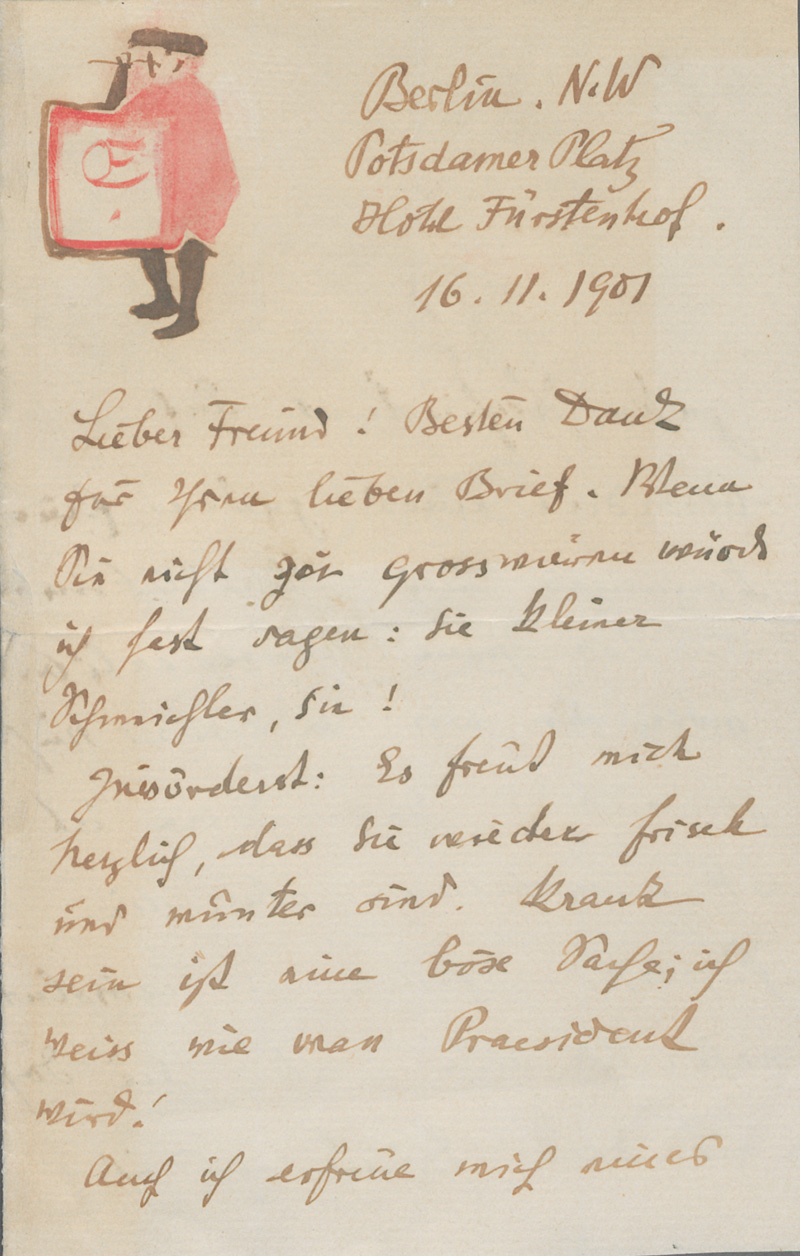 E.
Berlin. N.W
Potsdamer Platz
Hotel Fürstenhof.
16. 11. 1901
Lieber Freund! Besten Dank
für Ihren lieben Brief. Wenn
Sie nicht gar so gross wären würde
ich fast sagen: Sie kleiner
Schmeichler, Sie!
Zuvörderst: Es freut mich
herzlich, dass Sie wieder frisch
und munter sind. Krank
sein ist eine böse Sache; ich
weiss wie man Praesident
wird!
Auch ich erfreue mich eines